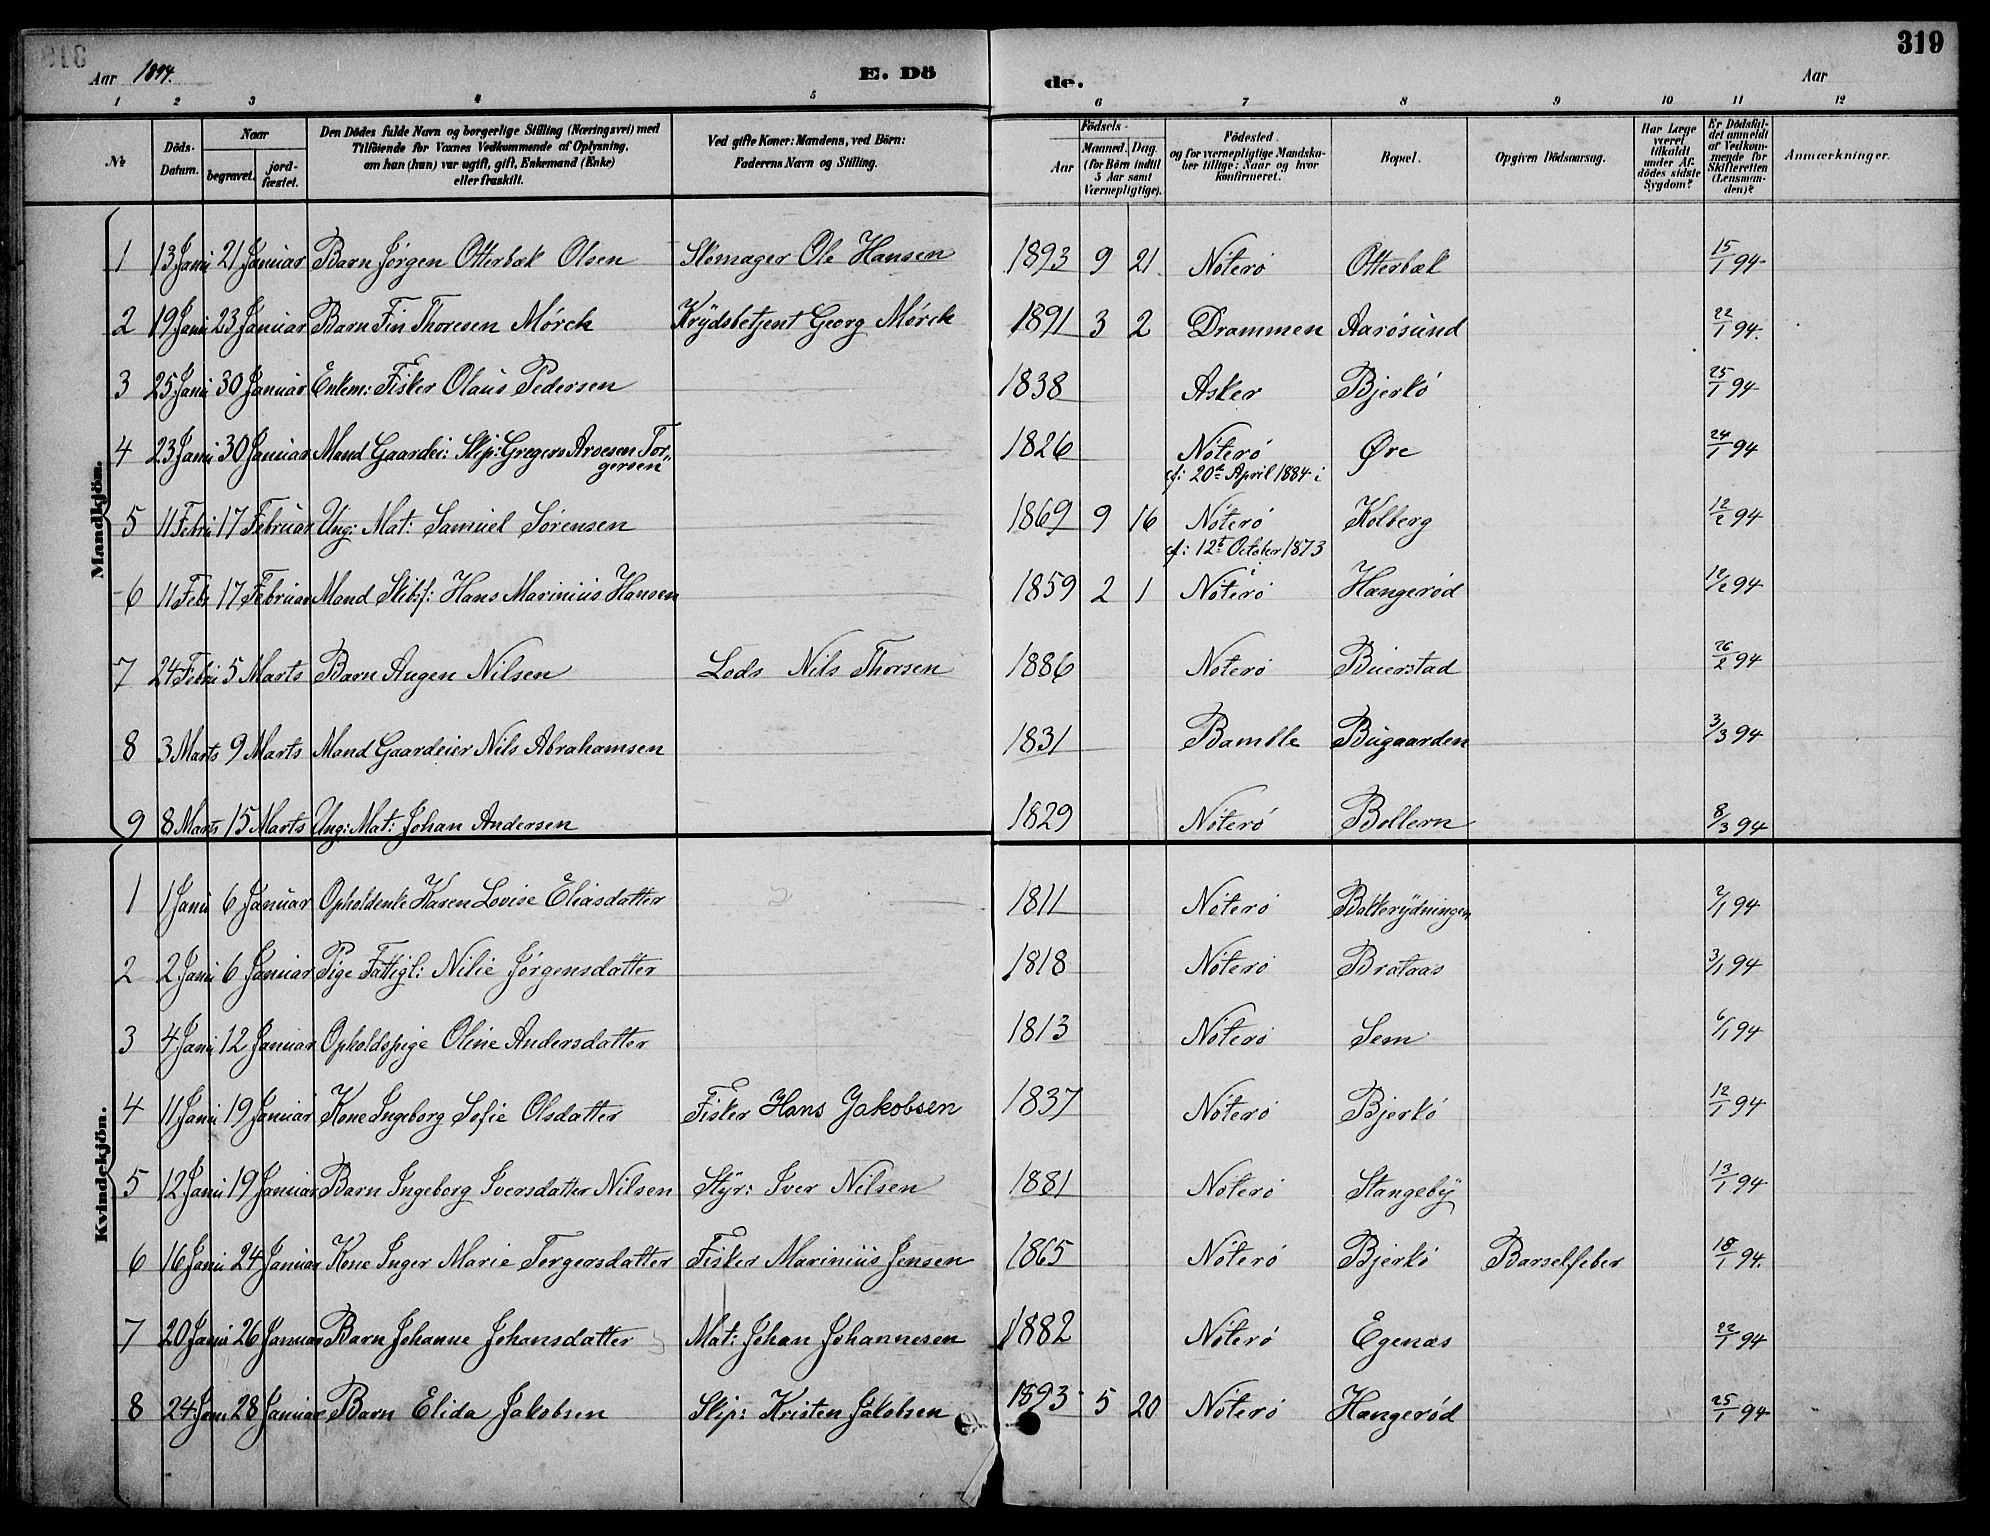 319
Aar 1894. E. Dö de. Aar
1 2 3 4 5 6 7 8 9 10 11 12
No
Döds-Datum.
Naar
begravet. jord-fæstet.
Den Dödes fulde Navn og borgerlige Stilling (Næringsvei) med
Tilföiende for Voxnes Vedkommende af Oplysning,
om han (hun) var ugift, gift, Enkemand (Enke)
eller fraskilt.
Ved gifte Koner: Mandens, ved Börn:
Faderens Navn og Stilling.
Födsels-
Aar Maaned. Dag.
(for Börn indtil
5 Aar samt
Værnepligtige).
Födested
og for værnepligtige Mandska-
ber tillige: Naar og hvor
konfirmeret.
Bopæl.
Opgiven Dödsaarsag.
Har Læge
været
tilkaldt
under Af-
dödes sidste
Sygdom?
Er Dödsfal-
det anmeldt
af Vedkom-
mende for
Skifteretten
(Lensman-
den)?
Anmærkninger.
Mandkjön.
1 13 Janu 21 Januar Barn Jørgen Otterbæk Olsen Skomager Ole Hansen 1893 9 21 Nøterø Otterbæk 15/1 94
2 19 Janu 23 Januar Barn Fin Thoresen Mørch Krydsbetjent Georg Mørch 1891 3 2 Drammen Aarøsund 22/1 94.
3 25 Janu 30 Januar Enkem: Fisker Olaus Pedersen 1838 Asker Bjerkø 25/1 94
4 23 Janu 30 Januar Mand Gaardei: Skip: Gregers Aroesen Tor-
gersen 1826 Nøterø Øre 24/1 94
cf: 20de April 1884 i
5 11 Febru 17 Februar Ung: Mat: Samuel Sørensen 1869 9 16 Nøterø Kolberg 12/2 94
cf: 12te October 1873
i
6 11 Feb 17 Februar Mand Skibsf: Hans Marinius Hansen 1859 2 1 Nøterø Hængerød 12/2 94
7 24 Febru 5 Marts Barn Augen Nilsen Lods Nils Thorsen 1886 Nøterø Buerstad 26/2 94
8 3 Marts 9 Marts Mand Gaardeier Nils Abrahamsen 1831 Bamble Bugaarden 3/3 94
9 8 Marts 15 Marts Ung: Mat: Johan Andersen 1829 Nøterø Bollern 8/3 94
Kvindekjön.
1 1 Janu 6 Januar Opholdenke Karen Lovise Eliasdatter 1811 Nøterø Bakkerydningen 2/1 94
2 2 Janu 6 Januar Pige Fattigl: Nilie Jørgensdatter 1818 Nøterø Brataas 3/1 94
3 4 Janu 12 Januar Opholdspige Oline Andersdatter 1813 Nøterø Sem 6/1 94
4 11 Janu 19 Januar Kone Ingeborg Sofie Olsdatter Fisker Hans Jakobsen 1837 Nøterø Bjerkø 12/1 94
5 12 Janu 19 Januar Barn Ingeborg Iversdatter Nilsen Styr: Iver Nilsen 1881 Nøterø Stangeby 13/1 94
6 16 Janu 24 Januar Kone Inger Marie Torgersdatter Fisker Marinius Jensen 1865 Nøterø Bjerkø Barselfeber 18/1 94.
7 20 Janu 26 Januar Barn Johanne Johansdatter Mat: Johan Johannesen 1882 Nøterø Egenæs 22/1 94
8 24 Janu 28 Januar Barn Elida Jakobsen Skip: Kristen Jakobsen 1893 5 20 Nøterø Hængerød 25/1 94